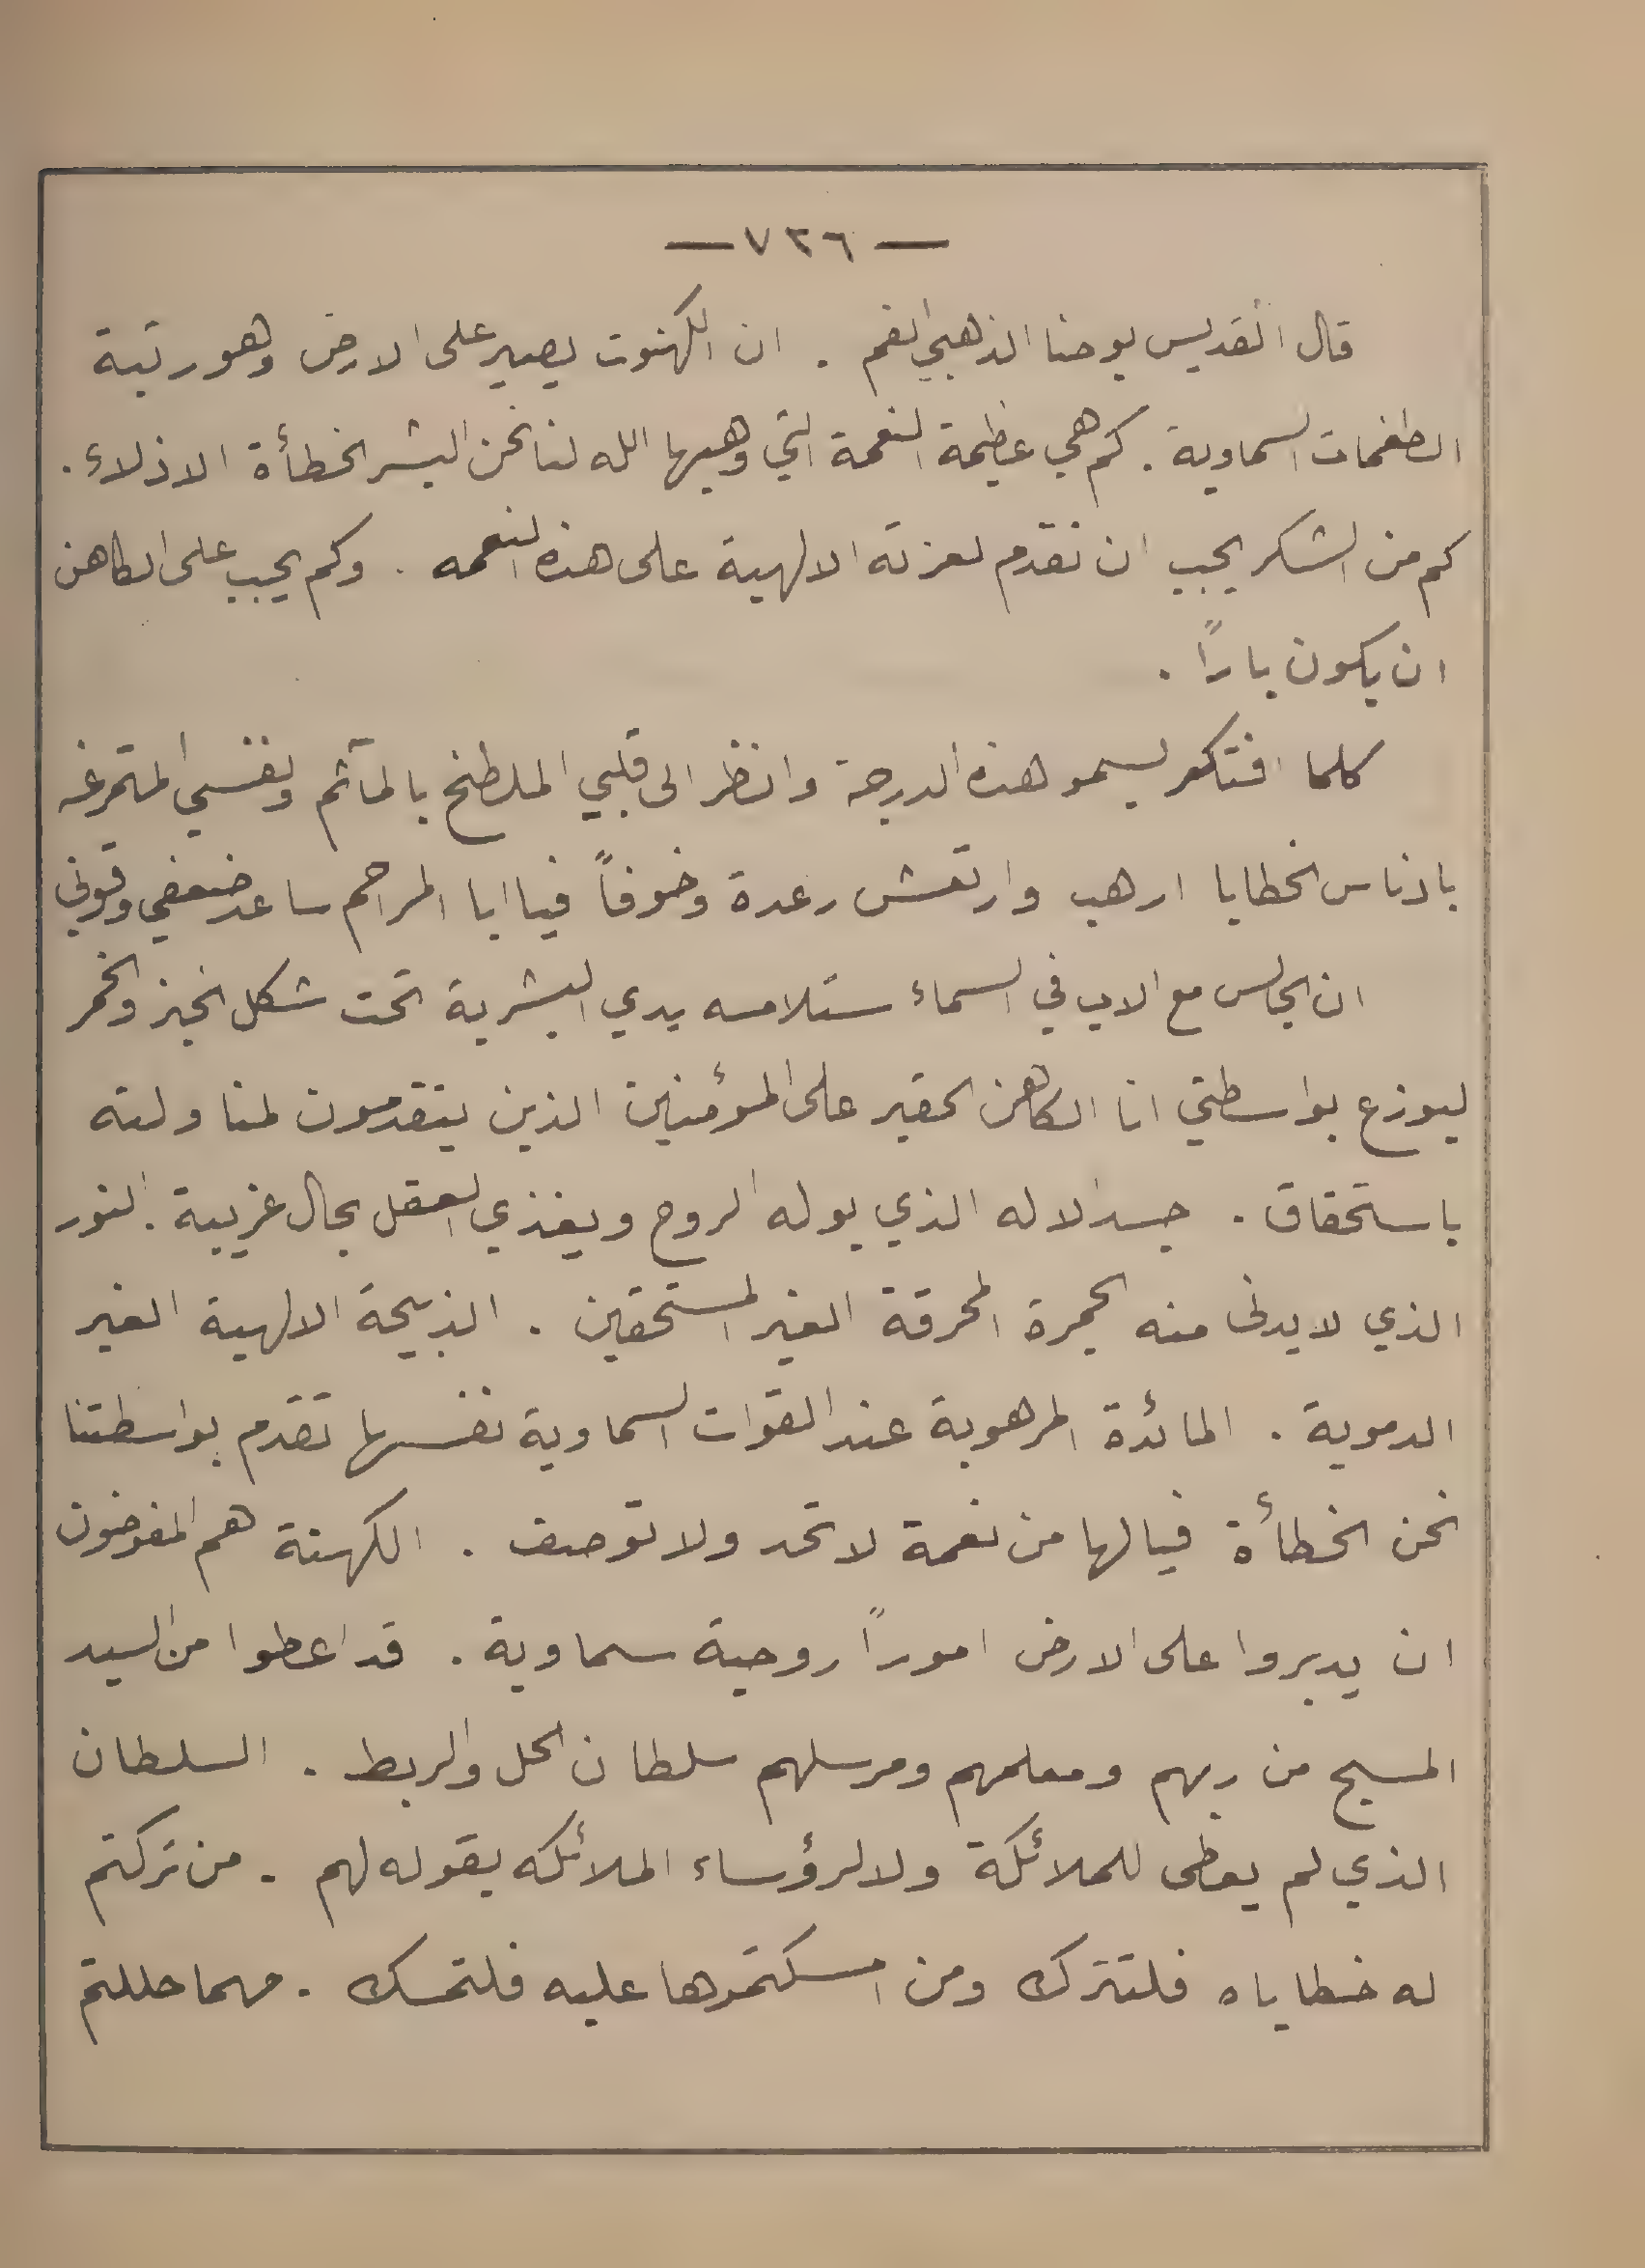 — ٧٢٦ —
قال القديس يوحنا الذهبي الفم . ان الكهنوت يصير على الارض وهو رتبة
الطغمات السماوية . كم هي عظيمة النعمة التي وهبها الله لنا نحن البشر الخطأة الاذلاء .
كم من الشكر يجب ان نقدم لعزته الالهية على هذه النعمه . وكم يجب على الكاهن
ان يكون باراً .
كلما افتكر بسمو هذه الدرجة وانظر الى قلبي الملطخ بالمآثم ونفسي المتمرغه
بادناس الخطايا ارهب وارتعش رعدة وخوفاً فيا ابا المراحم ساعد ضعفي وقوني
ان الجالس مع الاب في السماء ستلامسه يدي البشرية تحت شكل الخبز والخمر
ليوزع بواسطتي انا الكاهن الحقير على المؤمنين الذين يتقدمون لمناولته
باستحقاق . جسد الاله الذي يوله الروح ويغذي العقل بحال غريبة . النور
الذي لا يدنى منه الجمرة المحرقة الغير المستحقين . الذبيحة الالهية الغير
الدموية . المائدة المرهوبة عند القوات السماوية نفسها تقدم بواسطتنا
نحن الخطأة فيالها من نعمة لا تحد ولا توصف . الكهنة هم المفوضون
ان يدبروا على الارض اموراً روحية سماوية . قد اعطوا من السيد
المسيح من ربهم ومعلمهم ومرسلهم سلطان الحل والربط . السلطان
الذي لم يعطى للملائكة ولا لرؤساء الملائكه بقوله لهم . من تركتم
له خطاياه فلتترك ومن امسكتموها عليه فلتمسك . مهما حللتم